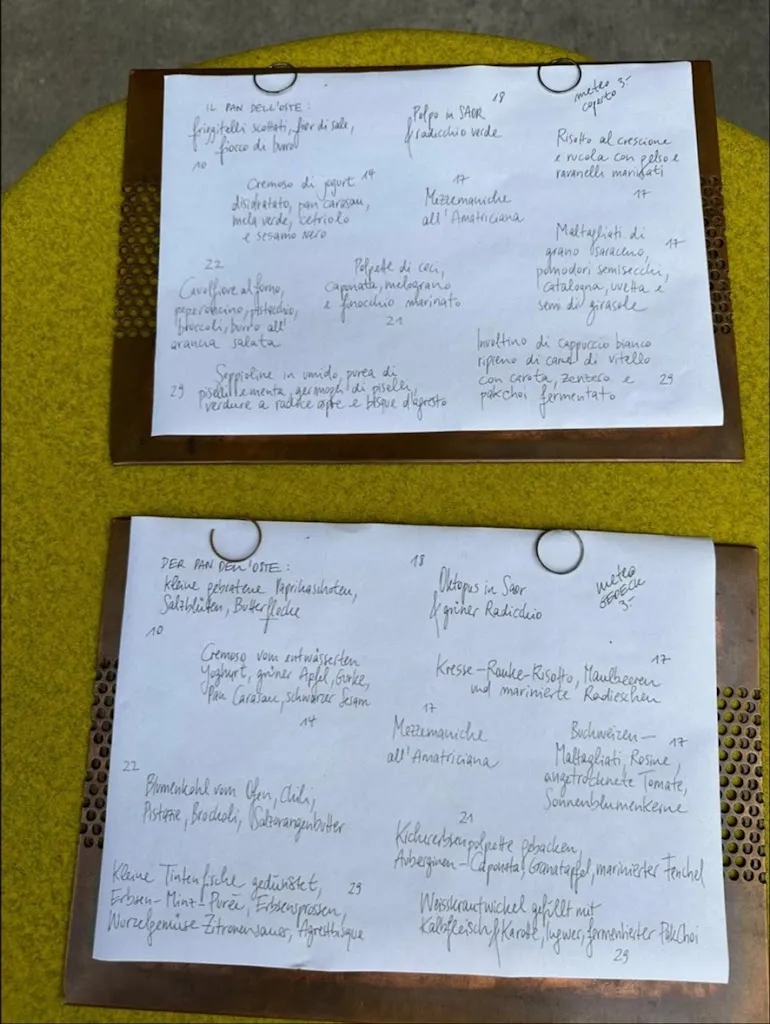 IL PAN DELL'OSTE:
friggitelli scottati, fior di sale,
fiocco di burro
10
Polpo in SAOR
& radicchio verde
18
meteo
coperto 3.-
Risotto al crescione
e rucola con gelso e
ravanelli marinati
17
Cremoso di yogurt 14
disidratato, pan carasau,
mela verde, cetriolo
e sesamo nero
17
Mezzemaniche
all'Amatriciana
Maltagliati di
grano saraceno, 17
pomodori semisecchi,
catalogna, uvetta e
semi di girasole
22
Cavolfiore al forno,
peperoncino, pistacchio,
broccoli, burro all'
arancia salata
Polpette di ceci,
caponata, melograno
e finocchio marinato
21
Involtino di cappuccio bianco
ripieno di carne di vitello
con carota, zenzero e 29
pakchoi fermentato
Seppioline in umido, purea di
29 piselli e menta, germogli di piselli,
verdure a radice agre e bisque d'agresto
DER PAN DELL'OSTE:
kleine gebratene Paprikaschoten,
Salzblüten, Butterflocke
10
18
Oktopus in Saor
& grüner Radicchio
meteo
GEDECK
3.-
Cremoso vom entwässerten
Yoghurt, grüner Apfel, Gurke,
Pan Carasau, schwarzer Sesam
14
17
Kresse-Rauke-Risotto, Maulbeeren
und marinierte Radieschen
17
Mezzemaniche
all'Amatriciana
Buchweizen- 17
Maltagliati, Rosine,
angetrocknete Tomate,
Sonnenblumenkerne
22
Blumenkohl vom Ofen, Chili,
Pistazie, Brockoli, Salzorangenbutter
21
Kichererbsenpolpette gebacken,
Auberginen-Caponata, Granatapfel, marinierter Fenchel
Kleine Tintenfische gedünstet, 29
Erbsen-Minz-Püree, Erbsensprossen,
Wurzelgemüse Zitronensauer, Agrestbisque
Weisskrautwickel gefüllt mit
Kalbfleisch & Karotte, Ingwer, fermentierter PakChoi
29